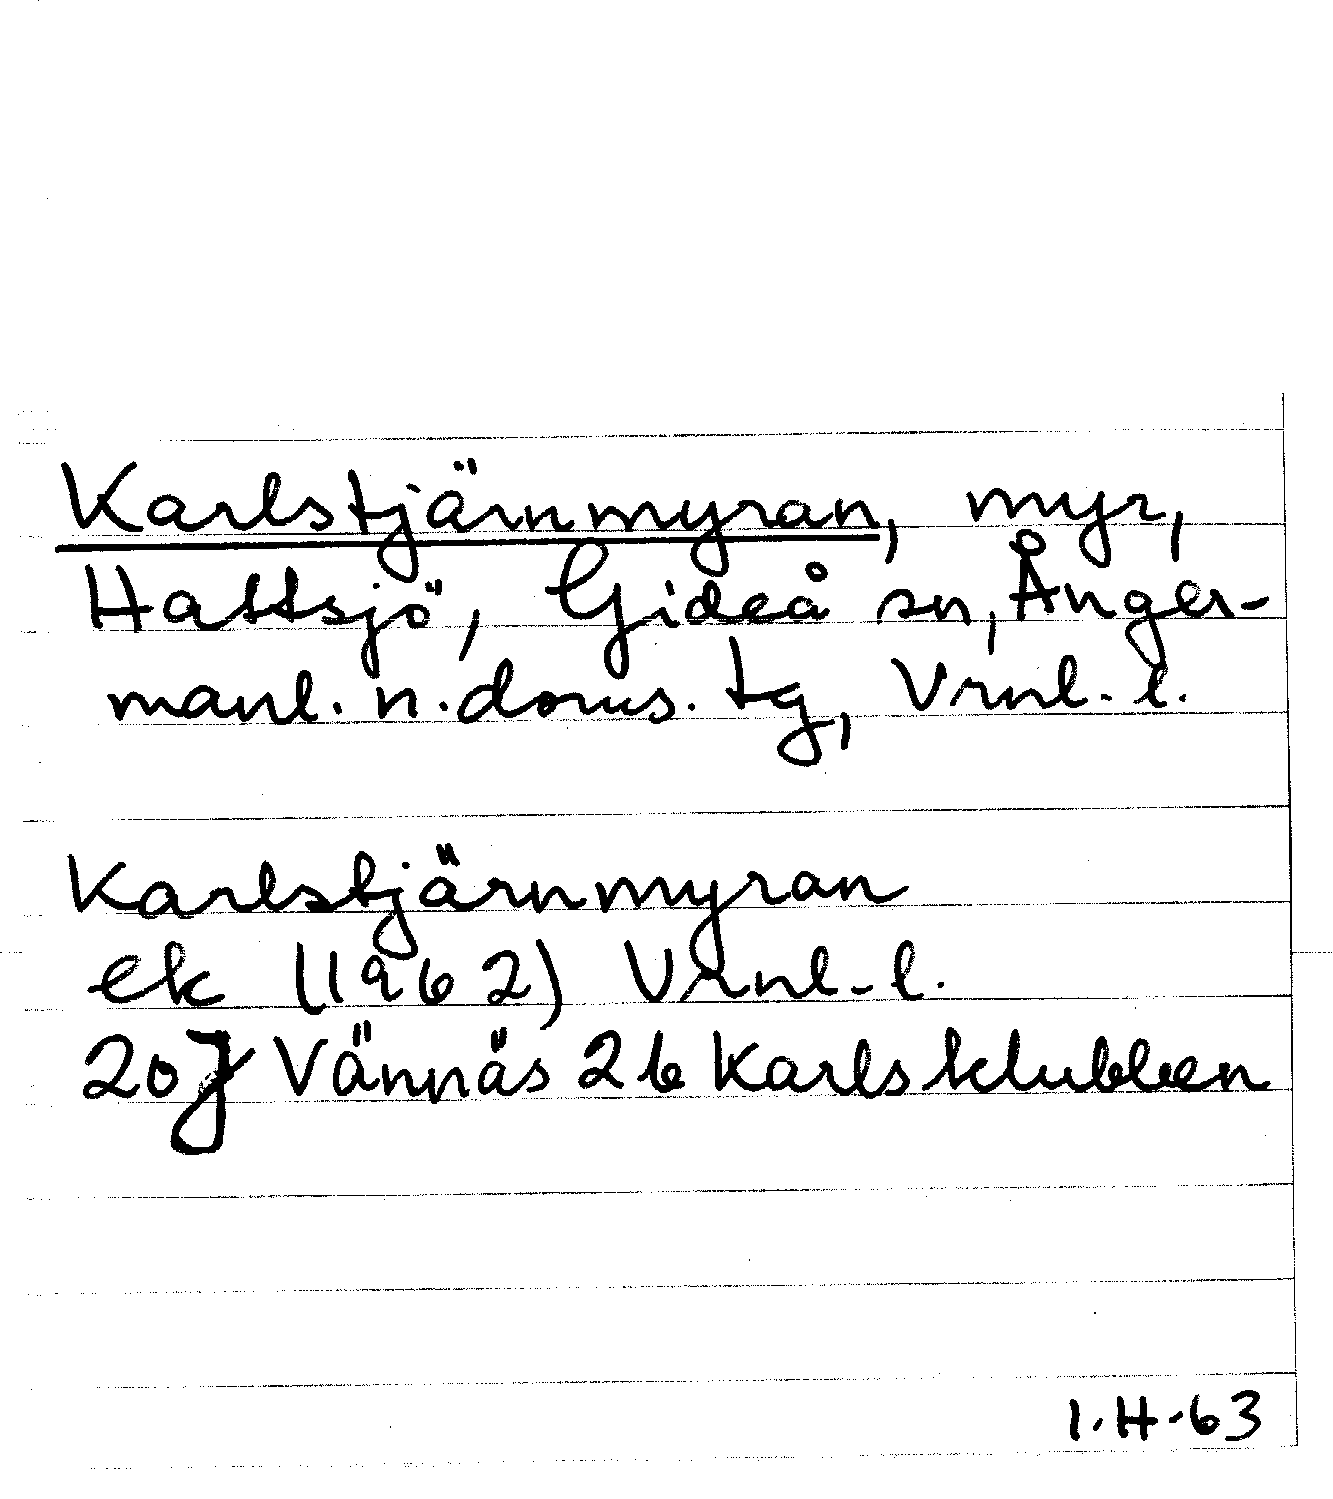 Karlstjärnmyran, myr,
Hattsjö, Gideå sn, Ånger-
manl. n. doms. tg, Vrnl. l.
Karlstjärnmyran
ek (1962) Vrnl-l.
20J Vännäs 2b Karlsklubben
I.H-63